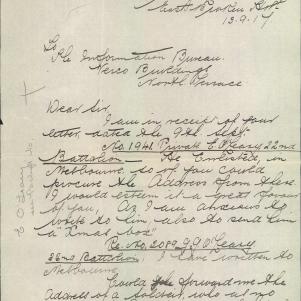 South Broken Hill
13.9.17
To
The Information Bureau.
Verco Buildings
North Terrace
Dear Sir
I am in receipt of your
letter, dated the 9th. Sept.
No. 1941 Private E O'Leary 22nd
Battalion - He Enlisted, in
Melbourne so if you could
procure the Address from there
I would esteem it a great favour
of you, As I am anxious to
write to him also to send him
a "Xmas box"
Re. No. 2079 O'Leary
22nd Battalion, I have written to
Melbourne
Could you forward me the
address of a soldier, who at one